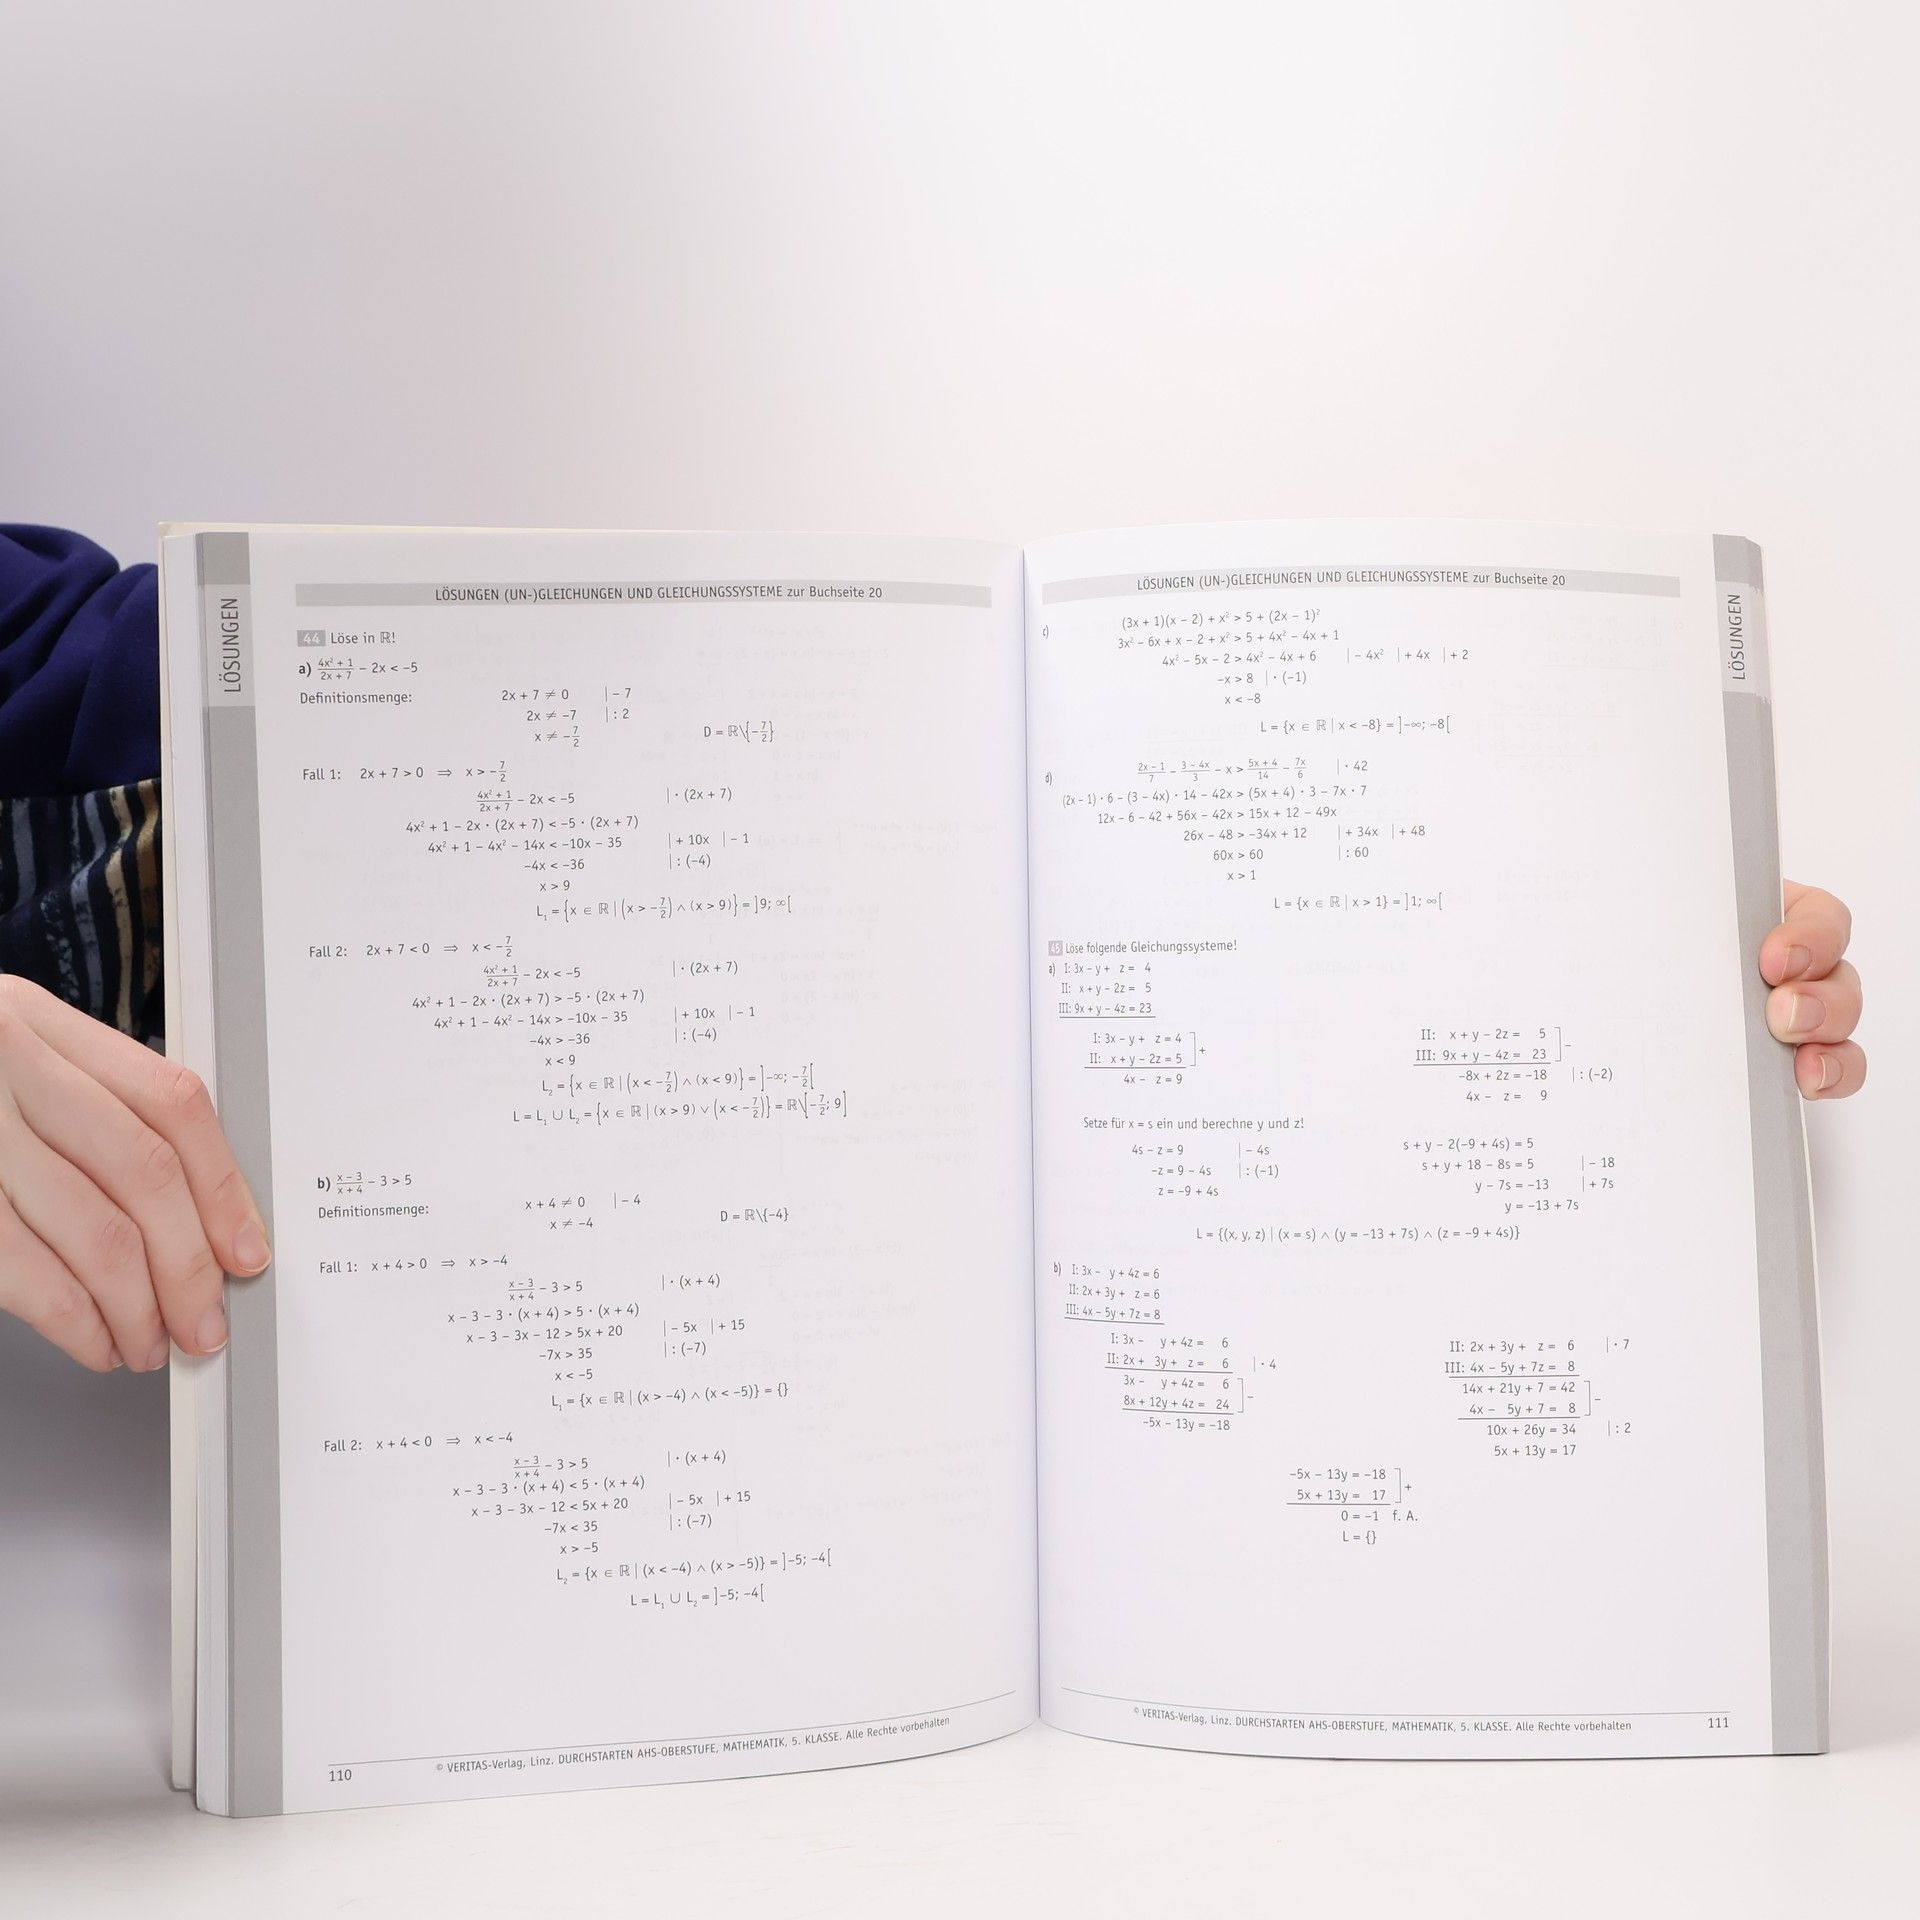 LÖSUNGEN
LÖSUNGEN (UN-)GLEICHUNGEN UND GLEICHUNGSSYSTEME zur Buchseite 20
44 Löse in ℝ!
a) (4x² + 1)/(2x + 7) − 2x < −5
Definitionsmenge: 2x + 7 ≠ 0 | − 7
2x ≠ −7 | : 2
x ≠ −7/2 D = ℝ\{−7/2}
Fall 1: 2x + 7 > 0 ⇒ x > −7/2
(4x² + 1)/(2x + 7) − 2x < −5 | · (2x + 7)
4x² + 1 − 2x · (2x + 7) < −5 · (2x + 7)
4x² + 1 − 4x² − 14x < −10x − 35 | + 10x | − 1
−4x < −36 | : (−4)
x > 9
L₁ = {x ∈ ℝ | (x > −7/2) ∧ (x > 9)} = ]9; ∞[
Fall 2: 2x + 7 < 0 ⇒ x < −7/2
(4x² + 1)/(2x + 7) − 2x < −5 | · (2x + 7)
4x² + 1 − 2x · (2x + 7) > −5 · (2x + 7)
4x² + 1 − 4x² − 14x > −10x − 35 | + 10x | − 1
−4x > −36 | : (−4)
x < 9
L₂ = {x ∈ ℝ | (x < −7/2) ∧ (x < 9)} = ]−∞; −7/2[
L = L₁ ∪ L₂ = {x ∈ ℝ | (x > 9) ∨ (x < −7/2)} = ℝ\[−7/2; 9]
b) (x − 3)/(x + 4) − 3 > 5
Definitionsmenge: x + 4 ≠ 0 | − 4
x ≠ −4 D = ℝ\{−4}
Fall 1: x + 4 > 0 ⇒ x > −4
(x − 3)/(x + 4) − 3 > 5 | · (x + 4)
x − 3 − 3 · (x + 4) > 5 · (x + 4)
x − 3 − 3x − 12 > 5x + 20 | − 5x | + 15
−7x > 35 | : (−7)
x < −5
L₁ = {x ∈ ℝ | (x > −4) ∧ (x < −5)} = {}
Fall 2: x + 4 < 0 ⇒ x < −4
(x − 3)/(x + 4) − 3 > 5 | · (x + 4)
x − 3 − 3 · (x + 4) < 5 · (x + 4)
x − 3 − 3x − 12 < 5x + 20 | − 5x | + 15
−7x < 35 | : (−7)
x > −5
L₂ = {x ∈ ℝ | (x < −4) ∧ (x > −5)} = ]−5; −4[
L = L₁ ∪ L₂ = ]−5; −4[
110 © VERITAS-Verlag, Linz. DURCHSTARTEN AHS-OBERSTUFE, MATHEMATIK, 5. KLASSE. Alle Rechte vorbehalten
LÖSUNGEN (UN-)GLEICHUNGEN UND GLEICHUNGSSYSTEME zur Buchseite 20
LÖSUNGEN
c) (3x + 1)(x − 2) + x² > 5 + (2x − 1)²
3x² − 6x + x − 2 + x² > 5 + 4x² − 4x + 1
4x² − 5x − 2 > 4x² − 4x + 6 | − 4x² | + 4x | + 2
−x > 8 | · (−1)
x < −8
L = {x ∈ ℝ | x < −8} = ]−∞; −8[
d) (2x − 1)/7 − (3 − 4x)/3 − x > (5x + 4)/14 − 7x/6 | · 42
(2x − 1) · 6 − (3 − 4x) · 14 − 42x > (5x + 4) · 3 − 7x · 7
12x − 6 − 42 + 56x − 42x > 15x + 12 − 49x
26x − 48 > −34x + 12 | + 34x | + 48
60x > 60 | : 60
x > 1
L = {x ∈ ℝ | x > 1} = ]1; ∞[
45 Löse folgende Gleichungssysteme!
a) I: 3x − y + z = 4
II: x + y − 2z = 5
III: 9x + y − 4z = 23
I: 3x − y + z = 4
II: x + y − 2z = 5 +
4x − z = 9
II: x + y − 2z = 5
III: 9x + y − 4z = 23 −
−8x + 2z = −18 | : (−2)
4x − z = 9
Setze für x = s ein und berechne y und z!
4s − z = 9 | − 4s
−z = 9 − 4s | : (−1)
z = −9 + 4s
s + y − 2(−9 + 4s) = 5
s + y + 18 − 8s = 5 | − 18
y − 7s = −13 | + 7s
y = −13 + 7s
L = {(x, y, z) | (x = s) ∧ (y = −13 + 7s) ∧ (z = −9 + 4s)}
b) I: 3x − y + 4z = 6
II: 2x + 3y + z = 6
III: 4x − 5y + 7z = 8
I: 3x − y + 4z = 6
II: 2x + 3y + z = 6 | · 4
3x − y + 4z = 6
8x + 12y + 4z = 24 −
−5x − 13y = −18
II: 2x + 3y + z = 6 | · 7
III: 4x − 5y + 7z = 8
14x + 21y + 7 = 42
4x − 5y + 7 = 8 −
10x + 26y = 34 | : 2
5x + 13y = 17
−5x − 13y = −18
5x + 13y = 17 +
0 = −1 f. A.
L = {}
© VERITAS-Verlag, Linz. DURCHSTARTEN AHS-OBERSTUFE, MATHEMATIK, 5. KLASSE. Alle Rechte vorbehalten 111